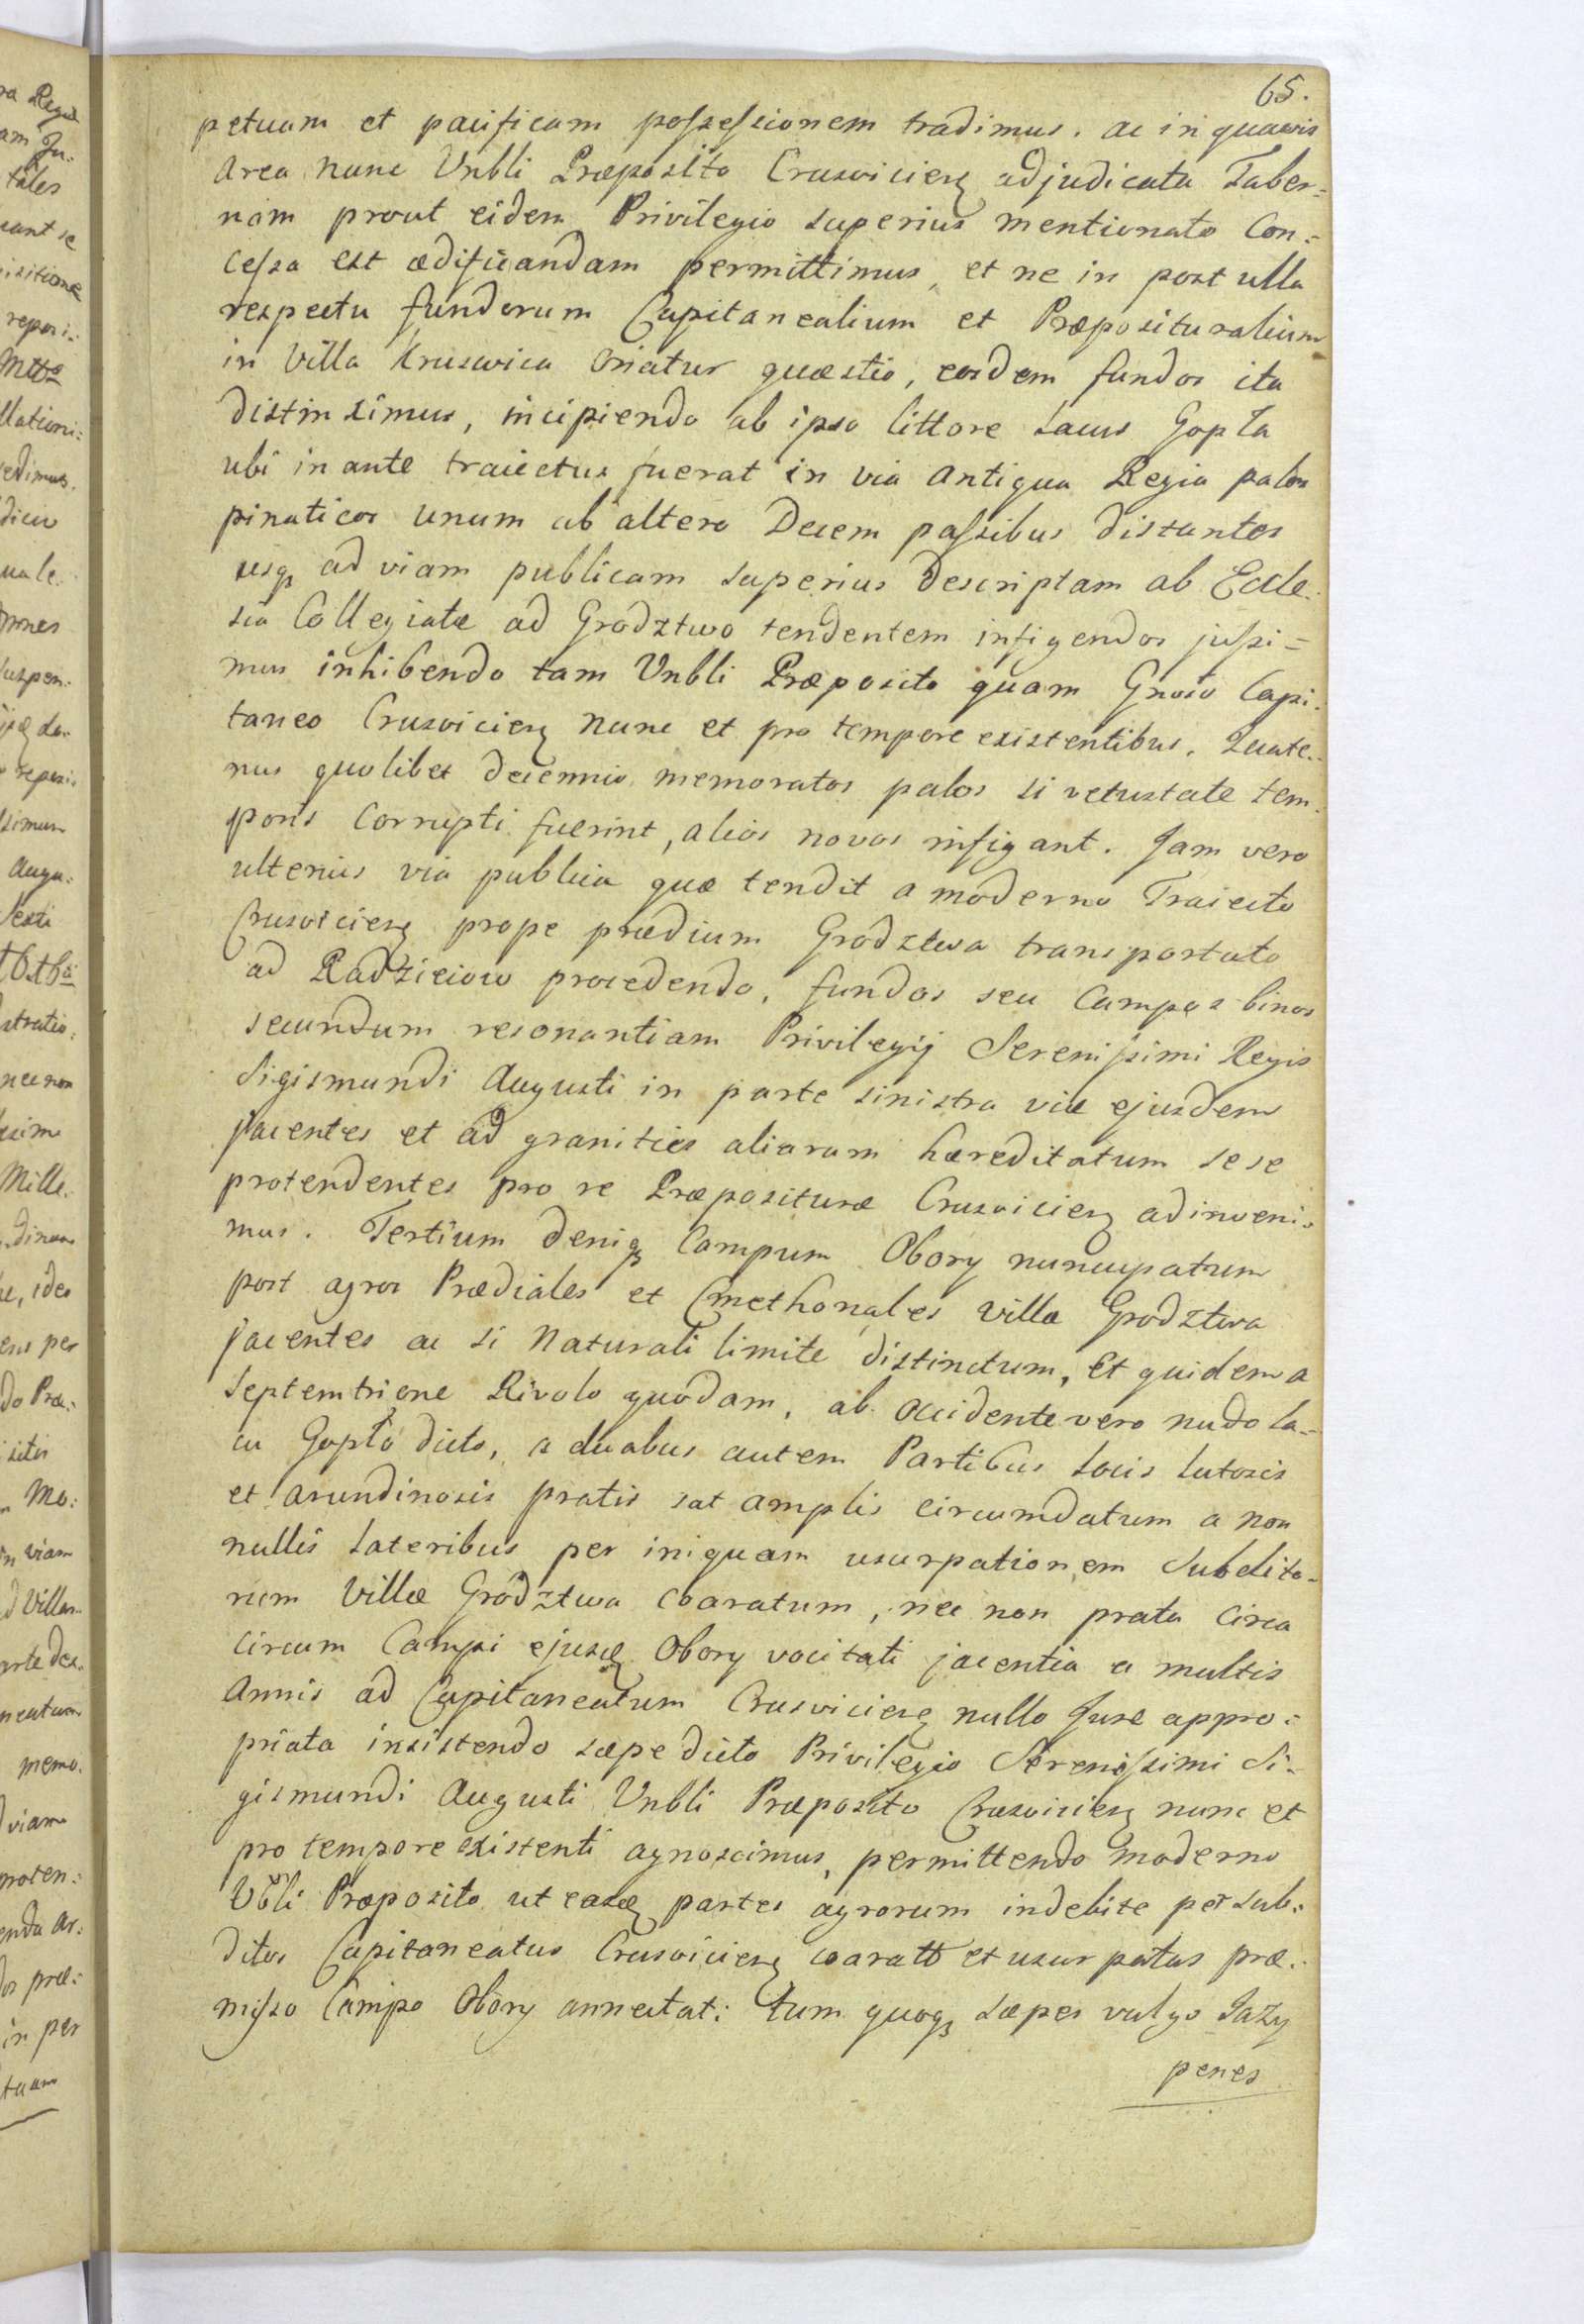 65.
petuam et pacificam poſseſsionem tradimus. ac in quavis
area nunc Vnbli Præposito Crusvicien̄ adjudicata Taber=
nam prout eidem Privilegio superius mentionato Con=
ceſsa est ædificandam permittimus, et ne in post ulla
respectu fundorum Capitanealium et Præposituralium
in Villa Kruswica oriatur quæstio, eosdem fundos ita
distinximus, incipiendo ab ipso littore Lacus Gopla
ubi in ante traiectus fuerat in via antiqua Regia palos
pinaticos unum ab altero Decem paſsibus distantes
usq̨ ad viam publicam superius descriptam ab Eccle:
sia Collegiata ad Grodztwo tendentem infigendos juſsi=
mus inhibendo tam Vnbli Præposito quam Gnoso Capi:
taneo Crusvicien̄ nunc et pro tempore existentibus. Quate:
nus quolibet decennio memoratos palos si vetustate tem:
poris Corrupti fuerint, alios novos infigant. Jam vero
ulterius via publica quæ tendit a moderno Traiectu
Crusvicien̄ prope prædium Grodztwa transportato
ad Radzieiow procedendo, fundos seu Campos binos
secundum resonantiam Privilegij Sereniſsimi Regis
Sigismundi Augusti in parte sinistra viæ ejusdem
jacentes et ad granities aliarum hæreditatum sese
protendentes pro re Præposituræ Crusvicien̄ adinveni:
mus. Tertium deniq̨ Campum Obory nuncupatum
post agros Prædiales et Cmethonales Villæ Grodztwa
jacentes ac si naturali limite distinctum, Et quidem a
Septemtrione Rivolo quodam, ab occidente vero nudo la=
cu Gopło dicto, a duabus autem Partibus Locis lutosis
et arundinosis pratis sat amplis circumdatum a non
nullis Lateribus per iniquam usurpationem Subdito=
rum Villæ Grodztwa coaratum, nec non prata circa
circum Campi ejusd̨ Obory vocitati jacentia a multis
annis ad Capitaneatum Crusvicien̄ nullo Jure appro:
priata insistendo sæpe dicto Privilegio Sereniſsimi Si=
gismundi Augusti Vnbli Præposito Crusvicien̄ nunc et
pro tempore existenti agnoscimus, permittendo moderno
Vbli Præposito ut easd̨ partes agrorum indebite per Sub:
ditos Capitaneatus Crusvicien̄ coaratt et usurpatas præ:
miſso Campo Obory annectat: tum quoq̨ sæpes vulgo Jazy
penes